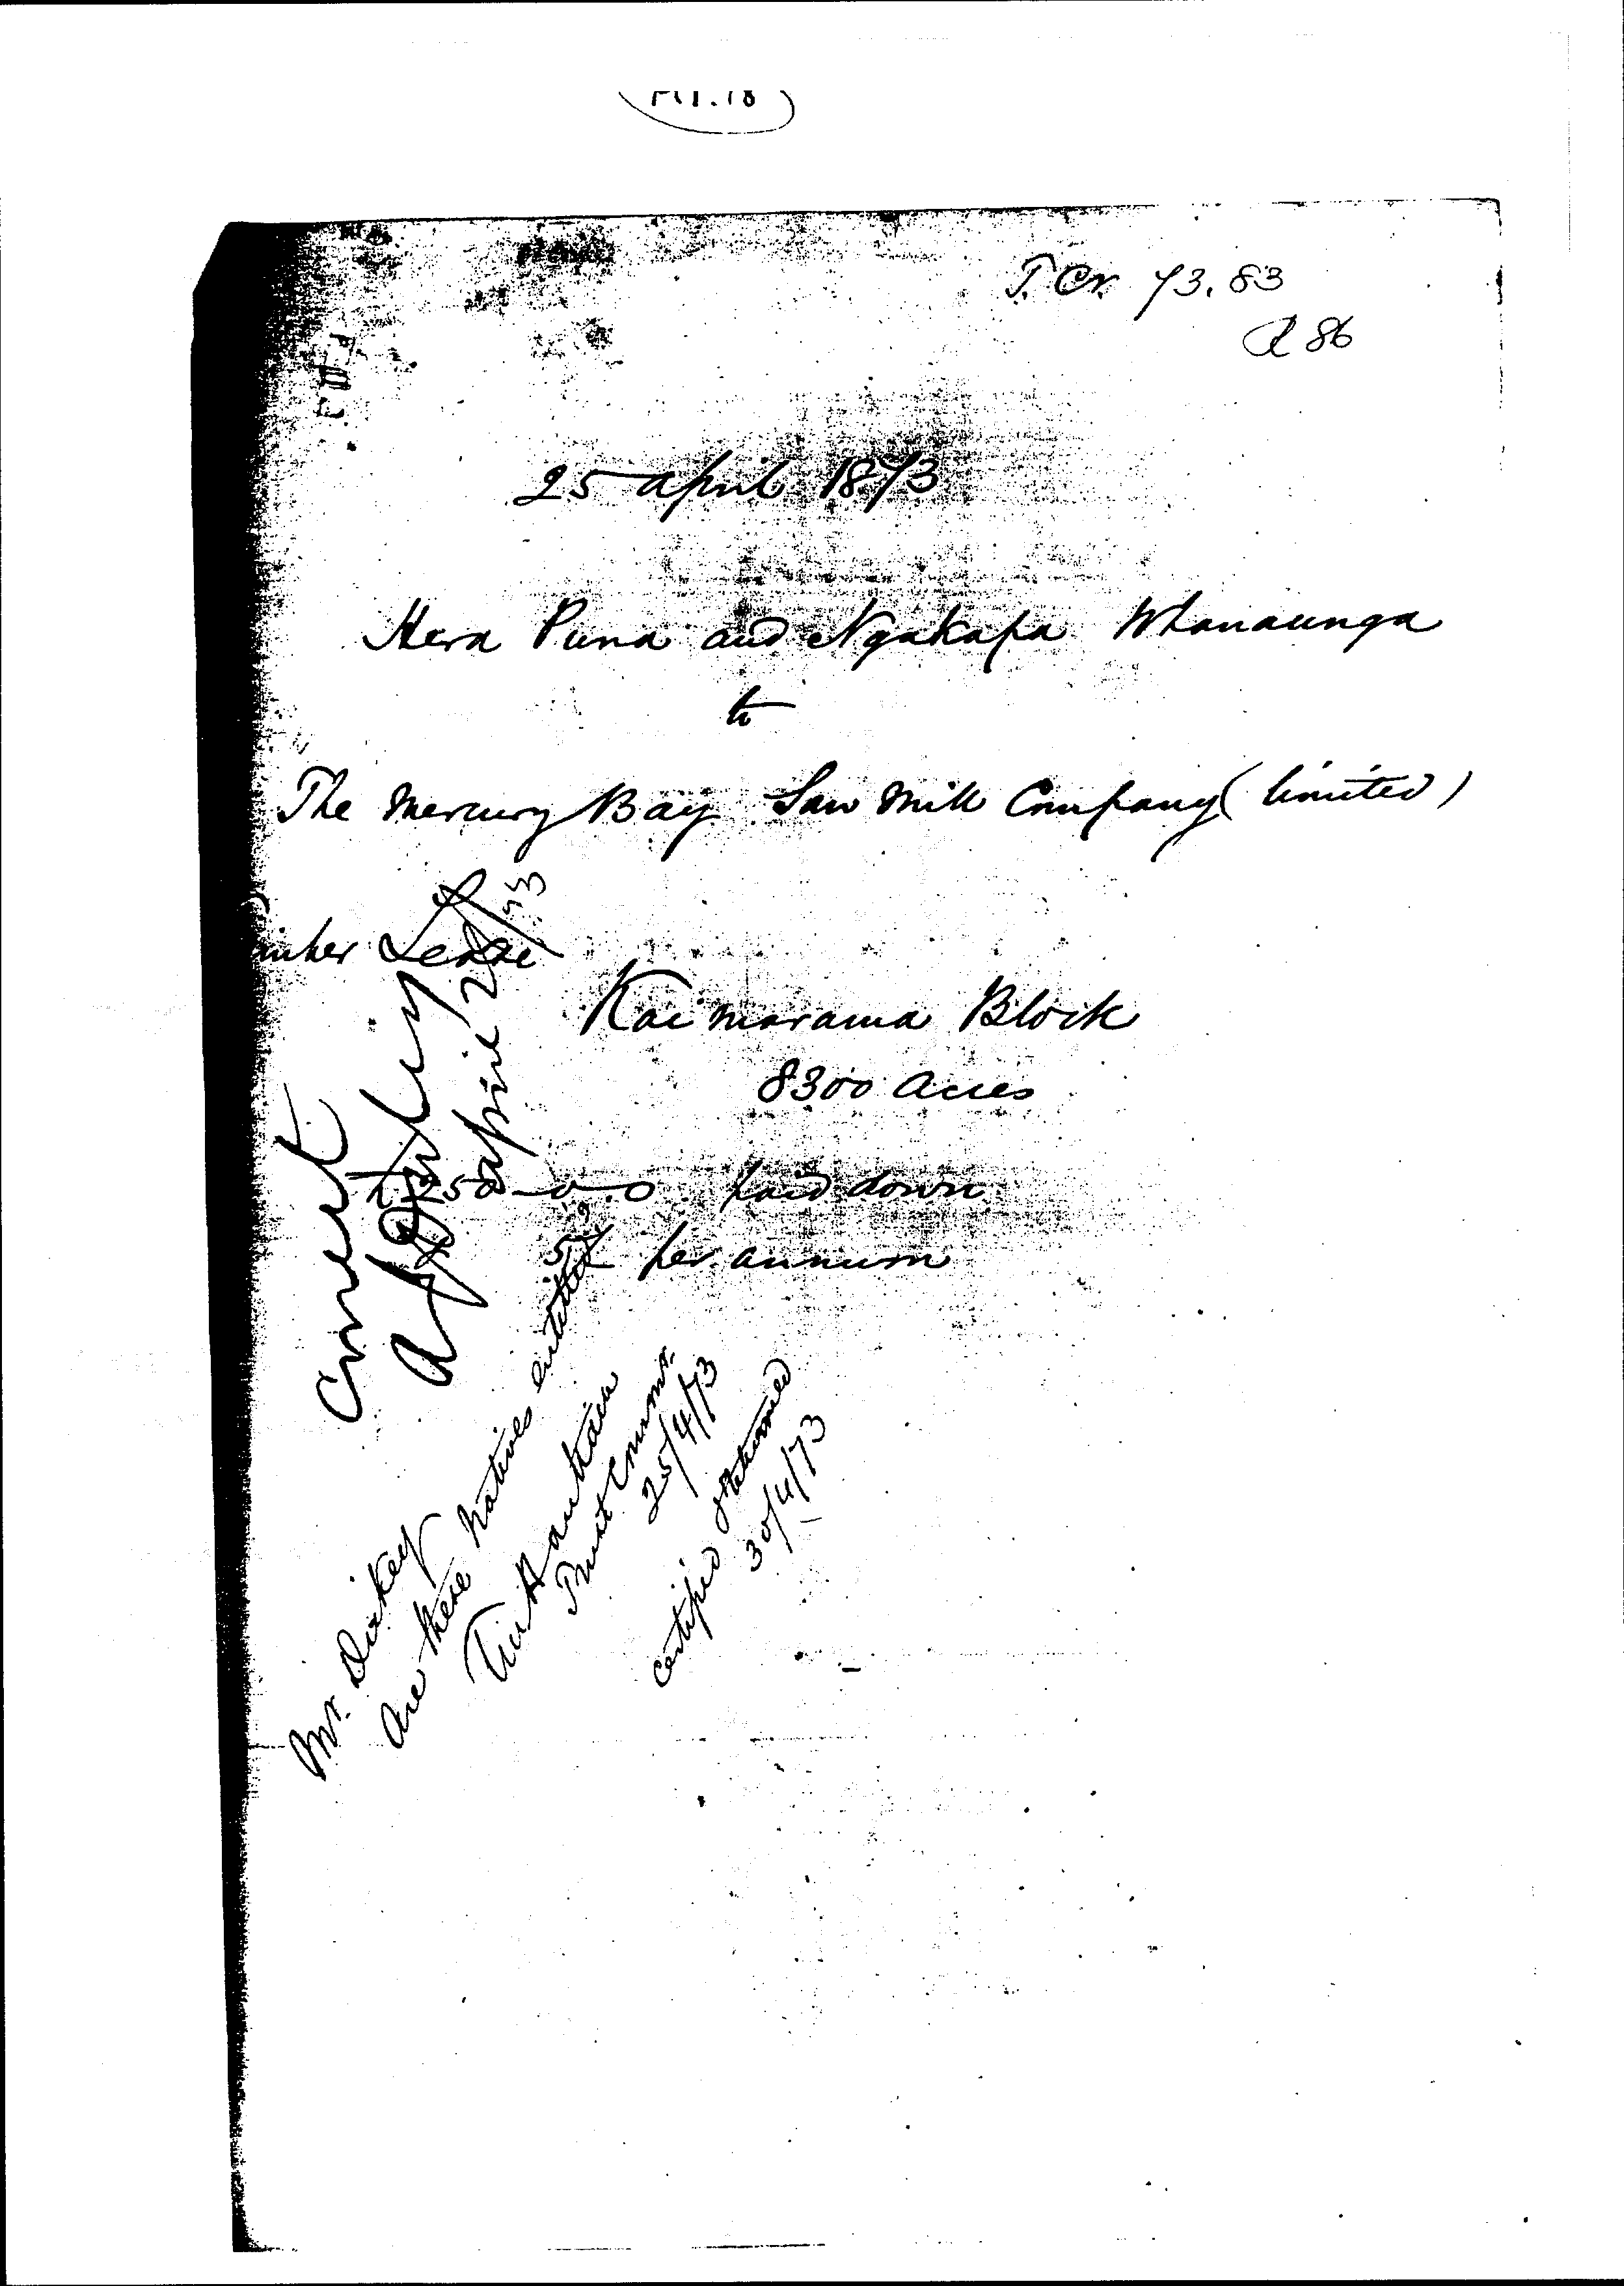 T. Cr. 73.83
R 86
25 April 1873
Hera Puna and Ngakapa Whanaunga
to
The Mercury Bay Saw Mill Company (limited)
Lease
Kaimarama Block
8300 Acres
£250-0-0 paid down
per annum
Correct
April
Mr. Dickey
Are these natives entitled
Trust Commr.
25/4/73
Certified & returned
30/4/73